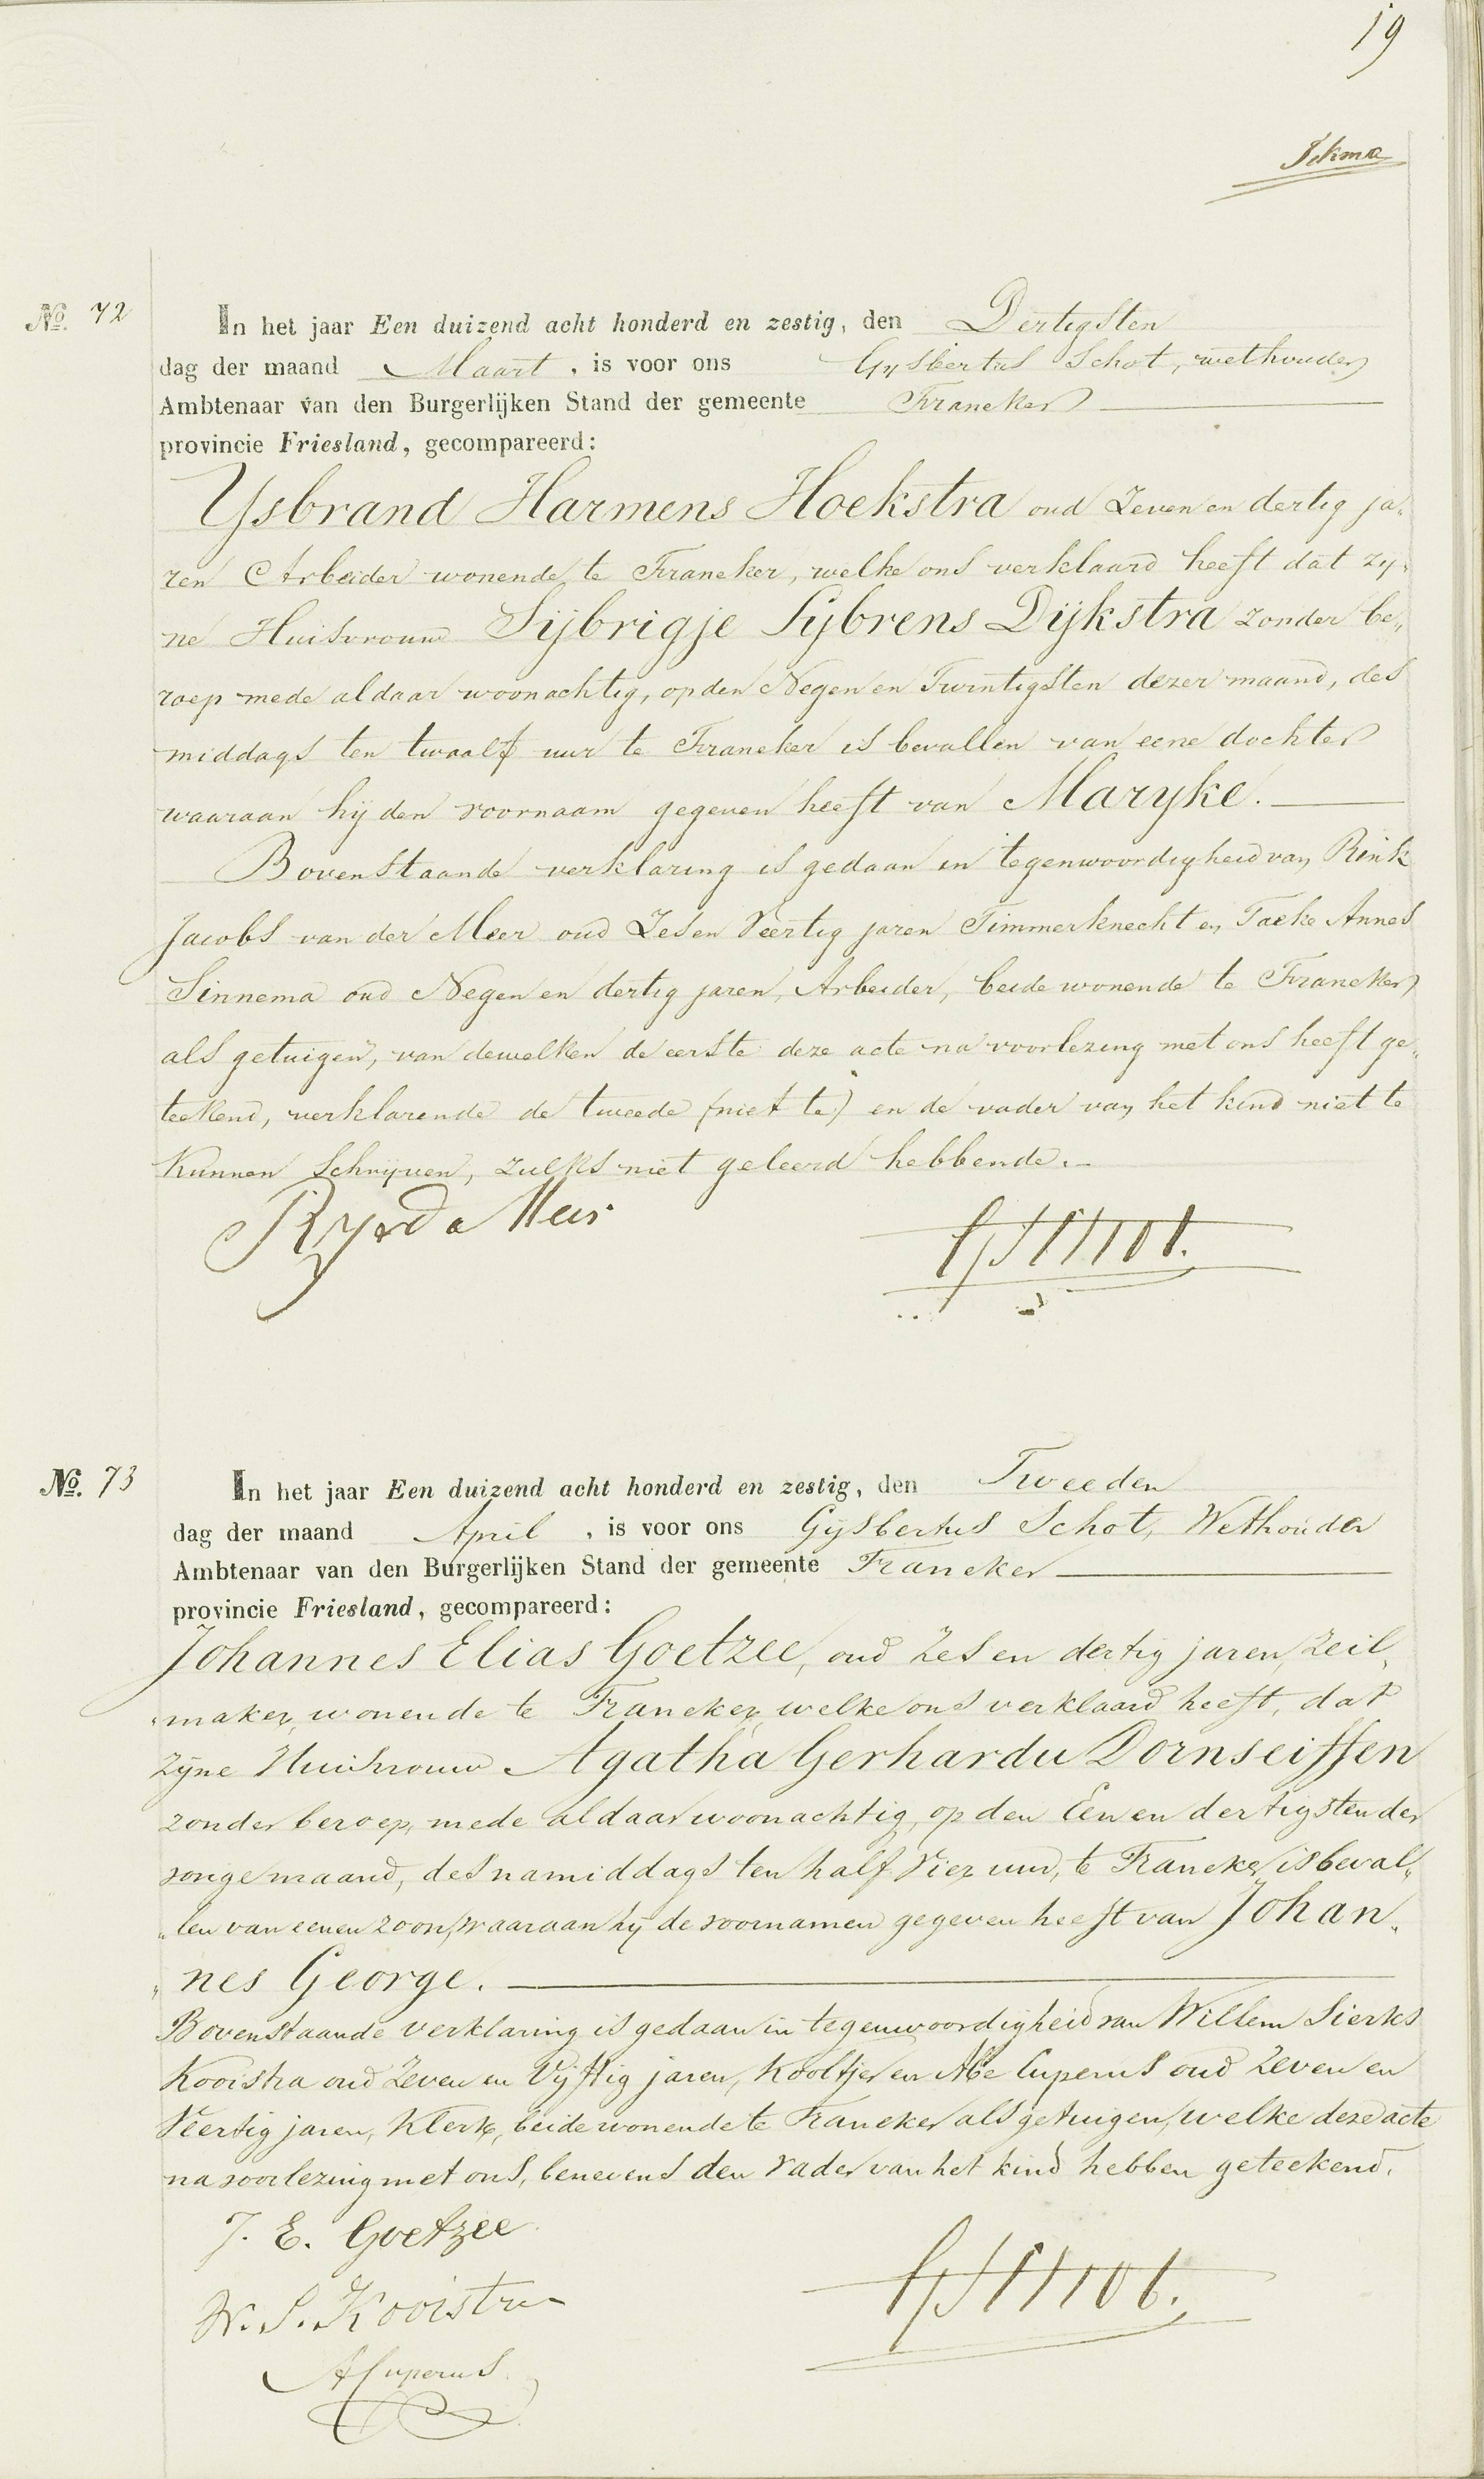 19
No. 72
In het jaar Een duizend acht honderd en zestig, den Dertigsten
dag der maand Maart, is voor ons Gijsbertus Schot, wethouder
Ambtenaar van den Burgerlijken Stand der gemeente Franeker
provincie Friesland, gecompareerd:
Ysbrand Harmens Hoekstra oud Zeven en dertig ja„
ren Arbeider wonende te Franeker, welke ons verklaard heeft dat zy„
ne Huisvrouw Sijbrigje Sybrens Dijkstra zonder be„
roep mede aldaar woonachtig, op den Negen en Twintigsten dezer maand, des
middags ten twaalf uur te Franeker is bevallen van eene dochter
waaraan hij den voornaam gegeven heeft van Maryke.
Bovenstaande verklaring is gedaan in tegenwoordigheid van Rink
Jacobs van der Meer oud Zes en Veertig jaren Timmerknecht en Taeke Annes
Sinnema oud Negen en dertig jaren, Arbeider, beide wonende te Franeker
als getuigen, van dewelken de eerste deze acte na voorlezing met ons heeft ge„
teekend, verklarende de tweede (niet te) en de vader van het kind niet te
Kunnen Schrijven, zulks niet geleerd hebbende.
GSchot.
No. 73
In het jaar Een duizend acht honderd en zestig, den Tweeden
dag der maand April, is voor ons Gijsbertus Schot, Wethouder
Ambtenaar van den Burgerlijken Stand der gemeente Franeker
provincie Friesland, gecompareerd:
Johannes Elias Goetzee, oud Zes en dertig jaren, Zeil„
„maker, wonende te Franeker, welke ons verklaard heeft, dat
zijne Huisvrouw Agatha Gerharda Dornseiffen
zonder beroep, mede aldaar woonachtig, op den Een en dertigsten der
vorige maand, des namiddags ten half Vier uur, te Franeker is beval„
„len van eenen zoon, waaraan hij de voornamen gegeven heeft van Johan„
„nes George.
Bovenstaande verklaring is gedaan in tegenwoordigheid van Willem Sierks
Kooistra oud Zeven en Vijftig jaren, Kooltjer en Abe Cuperus oud Zeven en
Veertig jaren, Klerk, beide wonende te Franeker als getuigen, welke deze acte
na voorlezing met ons, benevens den Vader van het kind hebben geteekend.
J. E. Goetzee
W. S. Kooistra
ACuperus
GSchot.